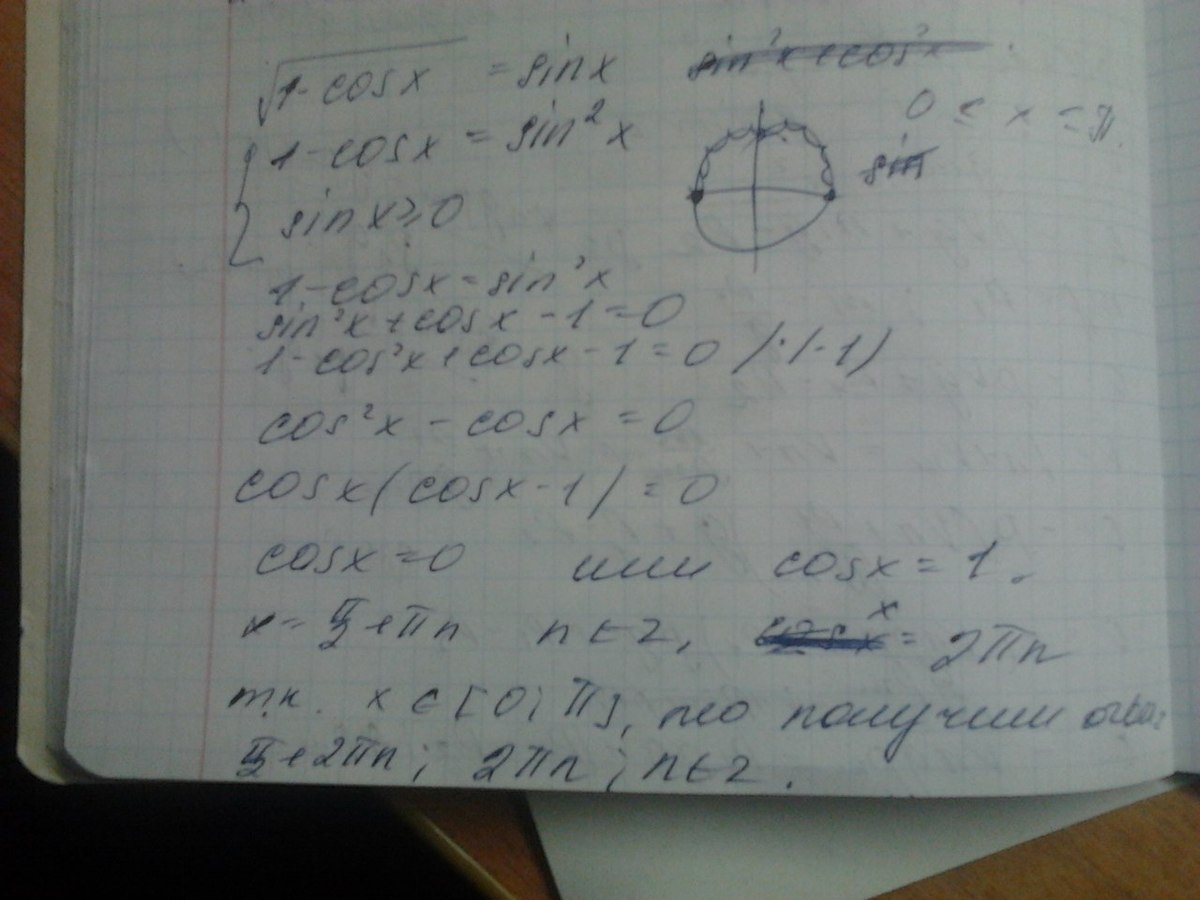 √(1-cosx) = sinx sin²x+cos²x
1-cosx = sin²x 0 ≤ x ≤ π
sin
sinx≥0
1-cosx=sin²x
sin²x+cosx-1=0
1-cos²x+cosx-1=0 /·(-1)
cos²x-cosx=0
cosx(cosx-1)=0
cosx=0 или cosx=1.
x=π/2+πn n∈Z, x=2πn
т.к. x∈[0;π], то получим ответ
π/2+2πn; 2πn; n∈Z.